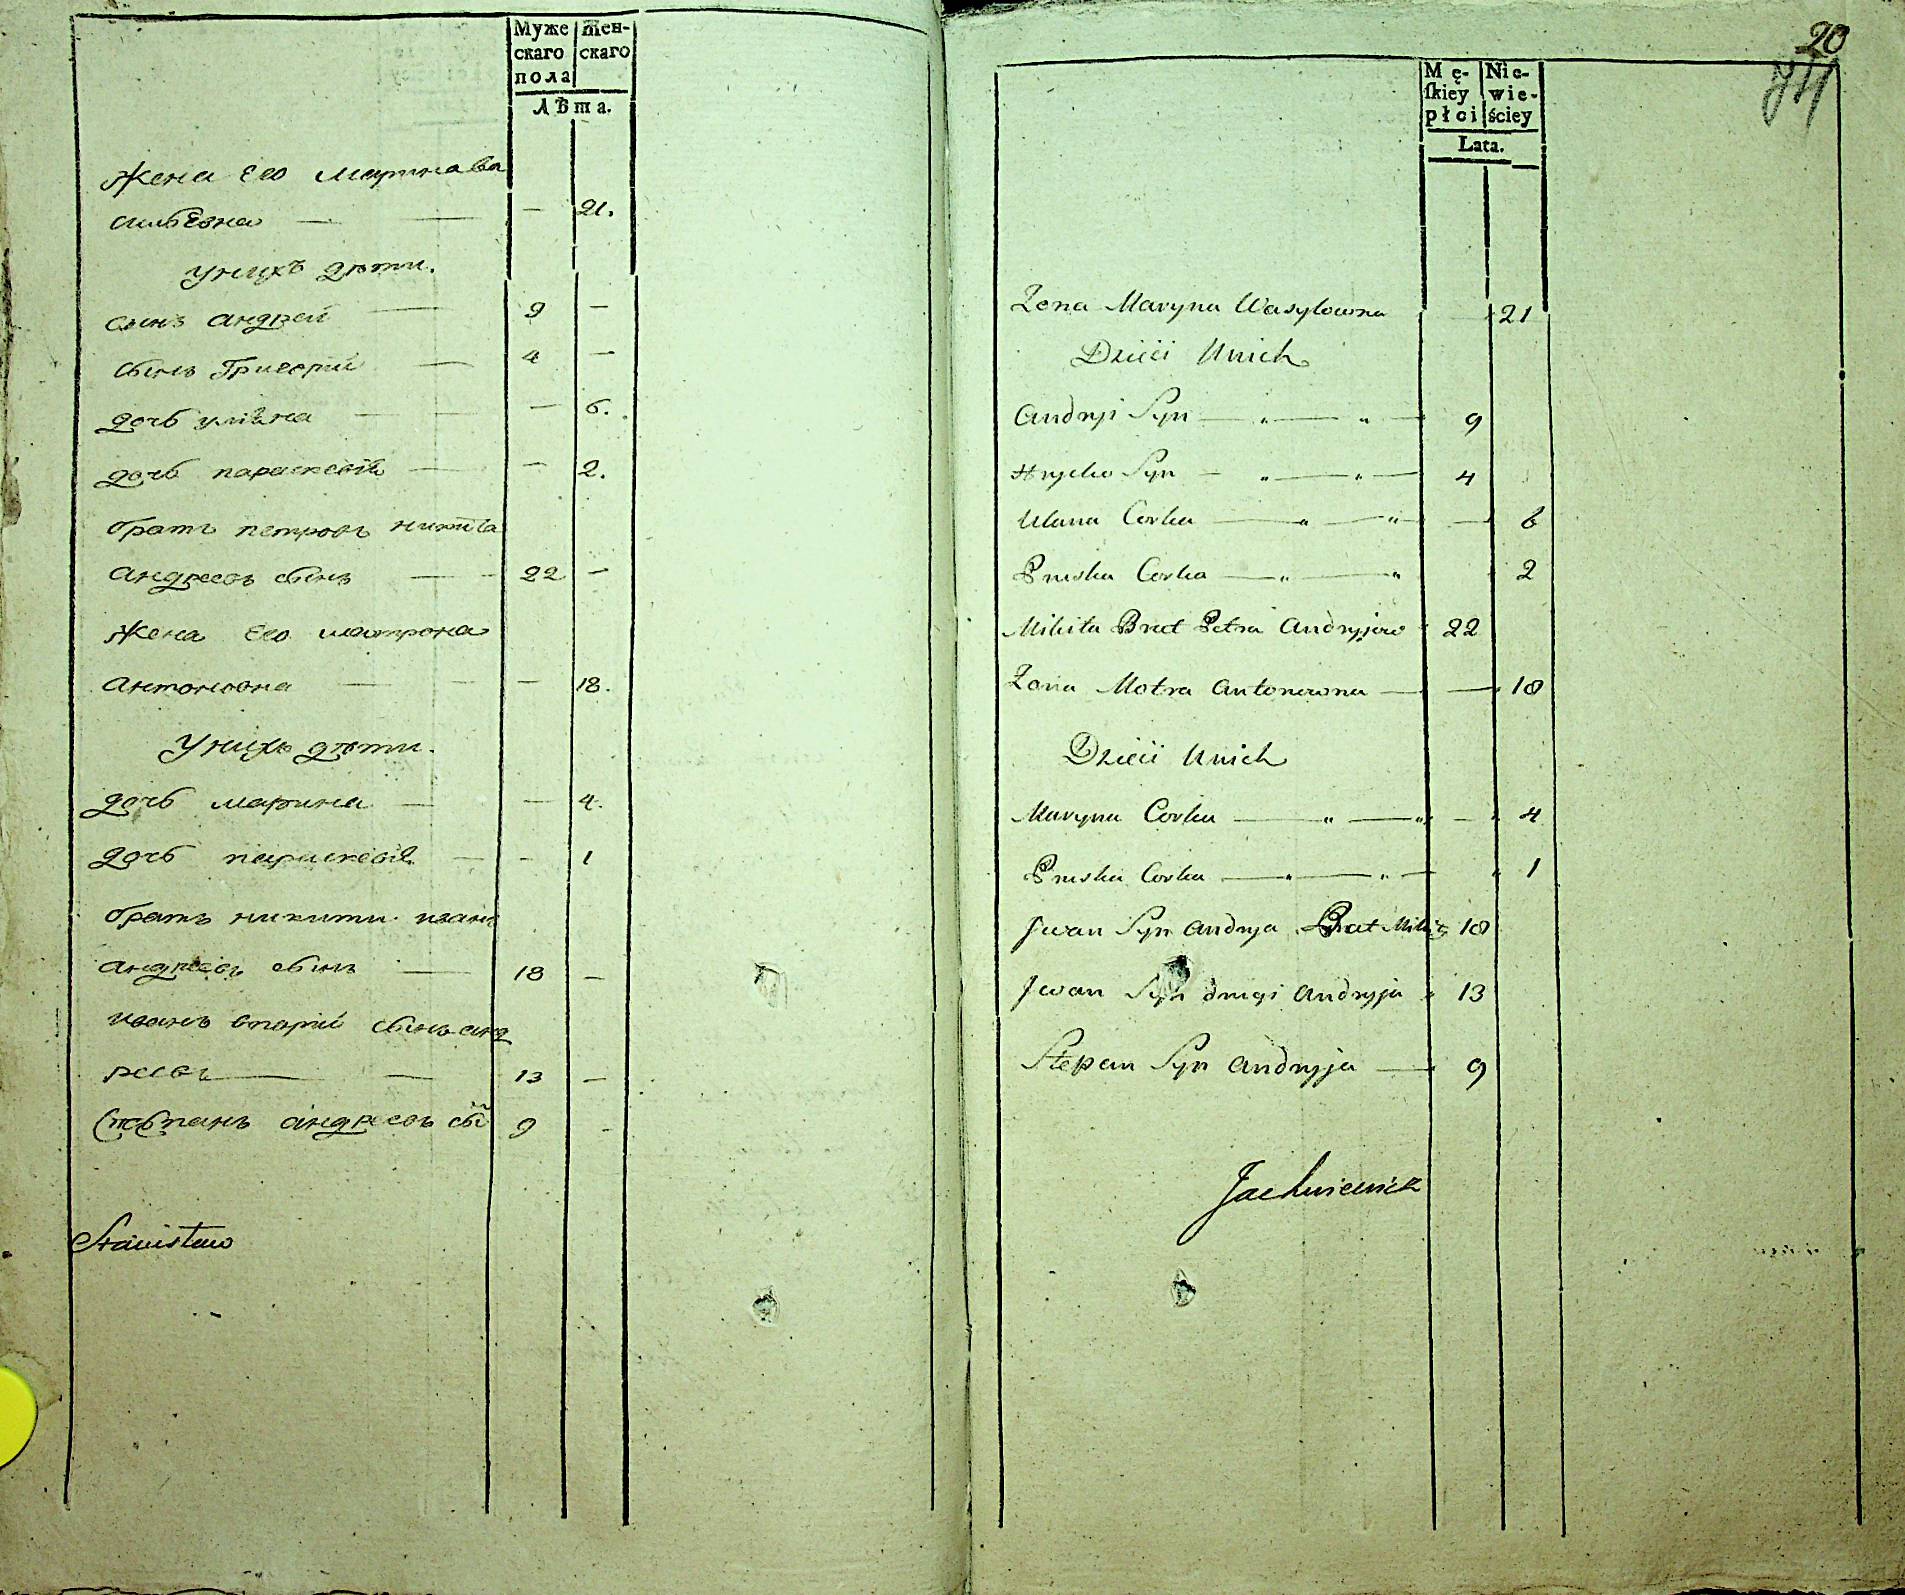 Муже Жен-
скаго скаго
пола
Лѣта.
жена Его марина ва
сильевна — — — 21.
у нихъ дѣти.
сынъ андрей — 9 —
сынъ Григорий — 4 —
дочь уляна — — — 6.
дочь параскевія — — 2.
братъ петровъ никита
андреевъ сынъ — 22 —
жена Его матрона
антоновна — — — 18.
У нихъ дѣти.
дочь марина — — 4.
дочь параскевія — — 1
братъ никити иванъ
андреевъ сынъ — 18 —
иванъ вторій сынъ анд
реевъ — — 13 —
Стѣпанъ андреевъ сы 9 -
Stanisław
20
Mę- Nie-
ſkiey wie-
płci ściey
Lata.
Zona Maryna Wasylowna — 21
Dzieci Unich
Andryi Syn — „ — „ — 9
Hryćko Syn — „ — „ — 4
Ulana Corka — „ — „ — — 6
Pruska Corka — „ — „ 2
Mikita Brat Petra Andryjow 22
Zona Motra Antonowna — — 18
Dzieci Unich
Maryna Corka — „ — „ — 4
Pruska Corka — „ — „ — „ 1
Jwan Syn Andryja Brat Mikity 18
Jwan Syn drugi Andryja „ 13
Stepan Syn Andryja — 9
Jachniewicz